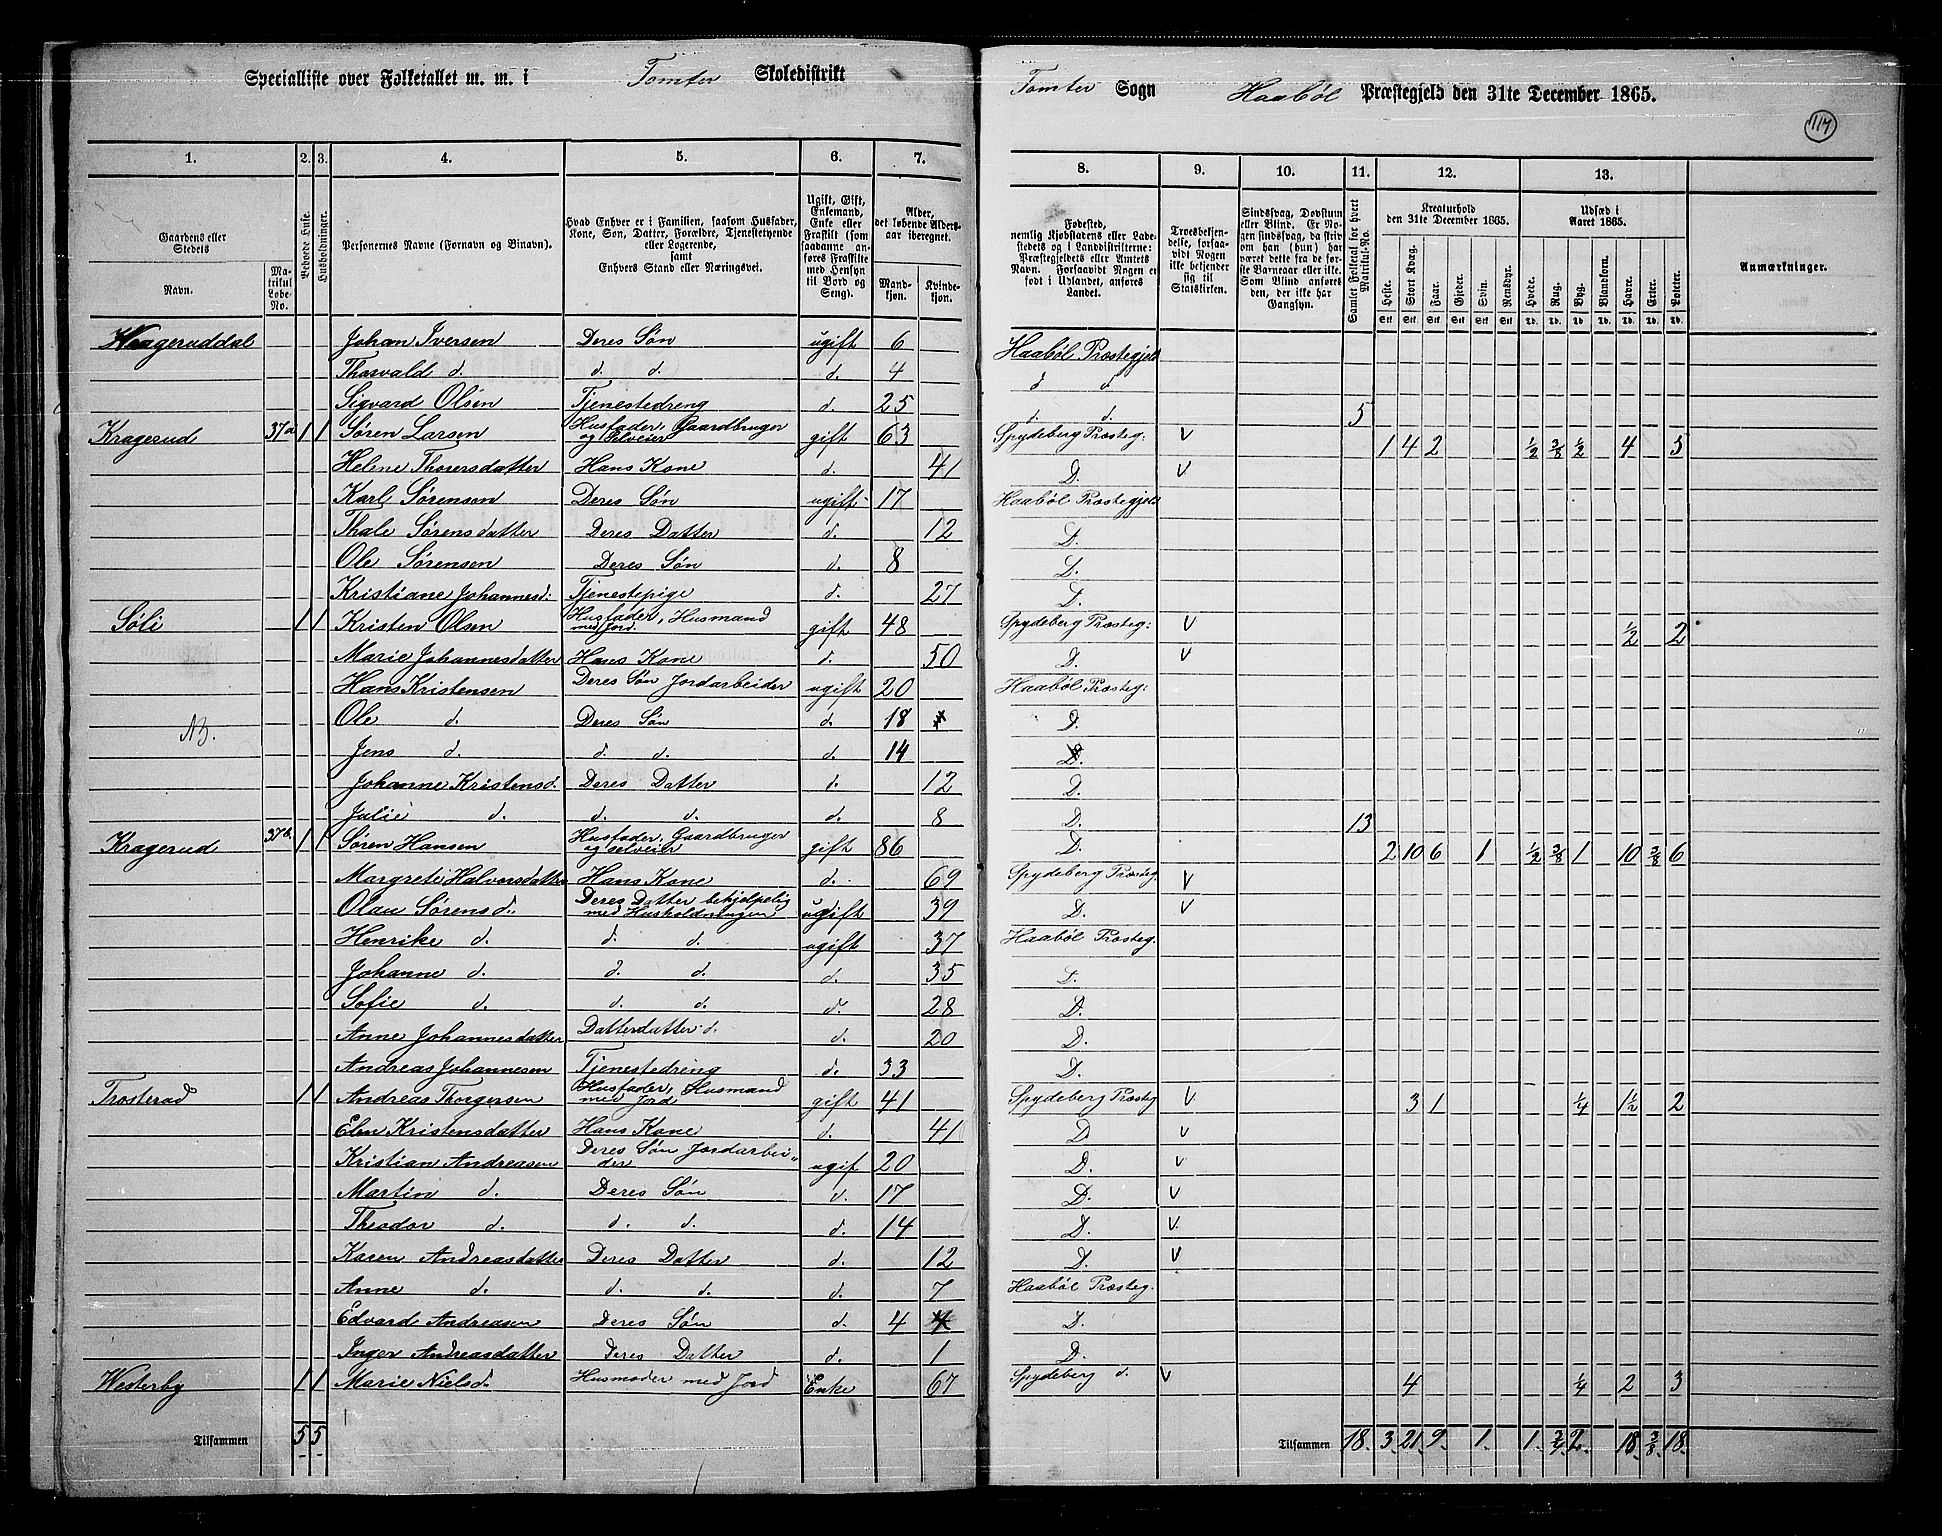 Specialliste over Folketallet m. m. i Tomter Skoledistrikt
Tomter Sogn Haabøl Præstegjeld den 31te December 1865.
117
1. 2. 3. 4. 5. 6. 7. 8. 9. 10. 11. 12. 13.
Gaardens eller Stedets Navn.
Matrikul Løbe-No.
Beboede Huse.
Husholdninger.
Personernes Navne (Fornavn og Binavn).
Hvad Enhver er i Familien, saasom Husfader, Kone, Søn, Datter, Forældre, Tjenestetyende eller Logerende, samt Enhvers Stand eller Næringsvei.
Ugift, Gift, Enkemand, Enke eller Fraskilt (som saadanne anføres Fraskilte med Hensyn til Bord og Seng).
Alder, det løbende Aldersaar iberegnet.
Mandkjøn. Kvindekjøn.
Fødested, nemlig Kjøbstadens eller Ladestedets og i Landdistrikterne: Præstegjeldets eller Amtets Navn. Forsaavidt Nogen er født i Udlandet, anføres Landet.
Troesbekjendelse, forsaavidt Nogen ikke bekjender sig til Statskirken.
Sindssvag, Døvstum eller Blind. Er Nogen sindssvag, da skriv om han (hun) har været dette fra de første Barneaar eller ikke. Som Blind ansees den, der ikke har Gangsyn.
Samlet Folketal for hvert Matrikul-No.
Kreaturhold den 31te December 1865.
Heste. Stort Kvæg. Faar. Gjeder. Svin. Rensdyr.
Udsæd i Aaret 1865.
Hvede. Rug. Byg. Blandkorn. Havre. Erter. Poteter.
Anmærkninger.
Krageruddal Johan Iversen Deres Søn ugift 6 Haabøl Præstegjeld
Thorvald d. d. d. d. 4 d d
Sigvard Olsen Tjenestedreng d. 25 d. d. 5
Kragerud 37a 1 1 Søren Larsen Husfader, Gaardbruger og Selveier gift 63 Spydeberg Præsteg: V 1 4 2 ½ 3/8 ½ 4 5
Helene Thorersdatter Hans Kone d. 41 D. V
Karl Sørensen Deres Søn ugift 17 Haabøl Præstegjeld
Thale Sørensdatter Deres Datter d. 12 D.
Ole Sørensen Deres Søn d. 8 D.
Kristiane Johannesd: Tjenestepige d. 27 D.
Søli 1 1 Kristen Olsen Husfader, Husmand med Jord. gift 48 Spydeberg Præsteg: V ½ 2
Marie Johannesdatter Hans Kone d. 50 D. V
Hans Kristensen Deres Søn Jordarbeider ugift 20 Haabøl Præsteg:
Ole d. Deres Søn d. 18 D.
NB. Jens d. d. d. d. 14 D.
Johanne Kristensd. Deres Datter d. 12 D.
Julie d. d. d. d. 8 D. 13
Kragerud 37b. 1 1 Søren Hansen Husfader, Gaardbruger og selveier gift 86 D. 2 10 6 1 ½ 3/8 1 10 3/8 6
Margrete Halvorsdatter Hans Kone d. 69 Spydeberg Præsteg. V
Olau Sørensd.: Deres Datter behjelpelig med Husholdningen ugift 39 D. V
Henrike d. d. d. ugift 37 Haabøl Præsteg.
Johanne d. d. d. d. 35 D.
Sofie d. d. d. d. 28 D.
Anne Johannesdatter Datterdatter d. d. 20 D.
Andreas Johannesen Tjenestedreng d. 33 D.
Trosterud 1 1 Andreas Thorgersen Husfader, Husmand med Jord gift 41 Spydeberg Præsteg V 3 1 ¼ 1½ 2
Elen Kristensdatter Hans Kone d. 41 D V
Kristian Andreasen Deres Søn Jordarbeider ugif 20 D. V
Martin d. Deres Søn d. 17 D. V
Theodor d. d. d. d. 14 D. V.
Karen Andreasdatter Deres Datter d. 12 D. V
Anne d. d. d. d. 7 Haabøl Præsteg.
Edvard Andreasen Deres Søn d. 4 D.
Inger Andreasdatter Deres Datter d. 1 D.
Westerby 1 1 Marie Nielsd. Husmoder med Jord Enke 67 Spydeberg d. V 4 ¼ 2 3
Tilsammen 5 5
Tilsammen 18. 3. 21. 9. 1. 1. 3/4 2. 18. 3/8 18.